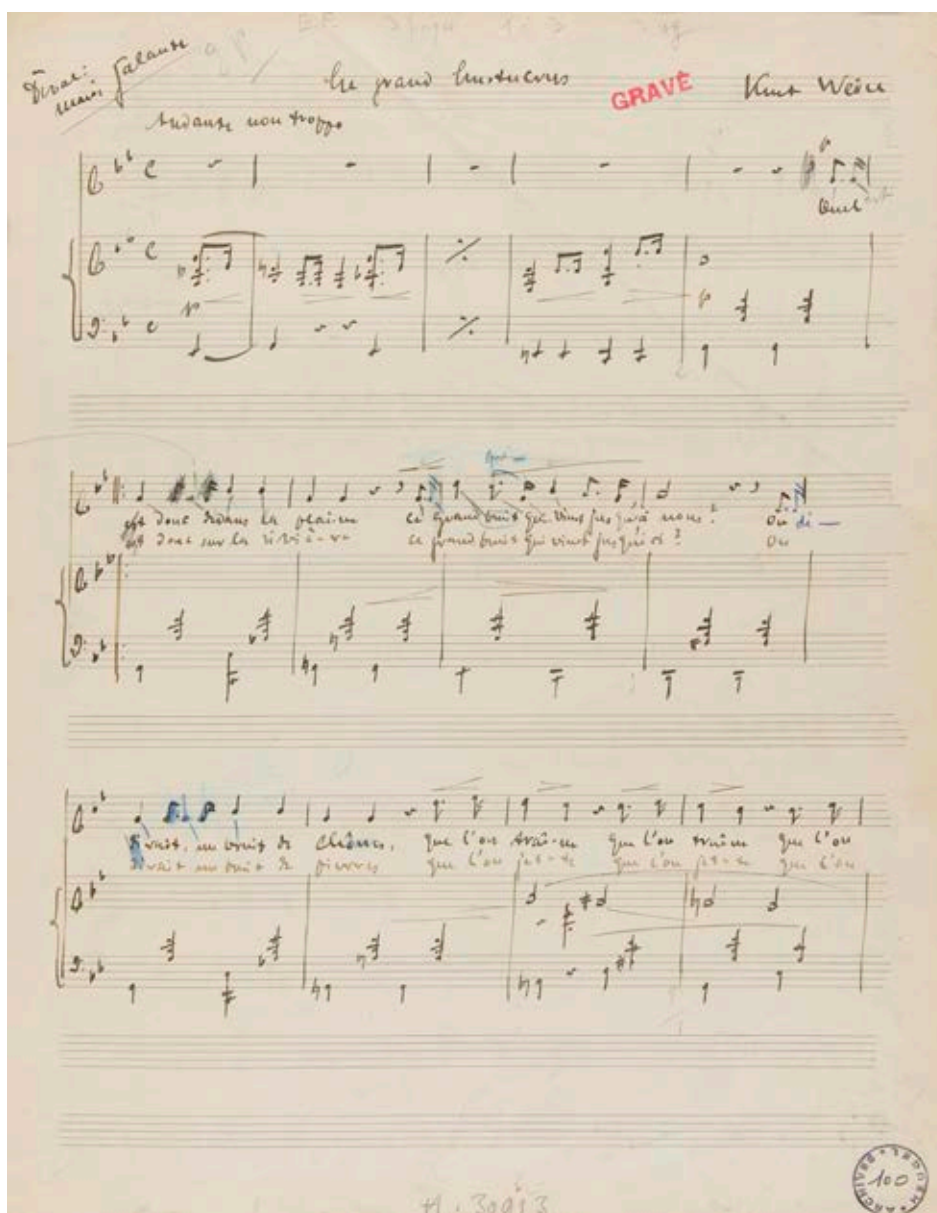 Deval:
Marie Galante
Le grand Lustucru
GRAVÉ
Kurt Weill
Andante non troppo
Quel est
est donc dedans la plai-ne ce grand bruit qui vient jusqu'à nous? On di-
est donc sur la riviè-re ce grand bruit qui vient jusqu'ici? On
dirait un bruit de chaînes, que l'on traî-ne que l'on traîne que l'on
dirait un bruit de pierres que l'on jet-te que l'on jet-te que l'on
100